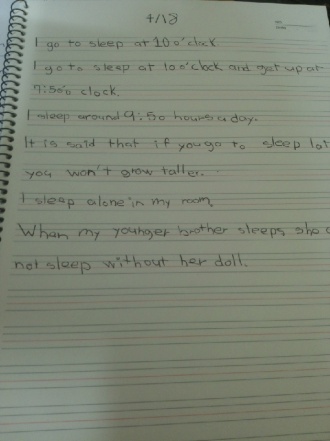 4/18
I go to sleep at 10 o'clock
I go to sleep at 10 o'clock and get up at
7:50 o clock.
I sleep around 9:50 hours a day.
It is said that if you go to sleep lat
you won't grow taller.
I sleep alone in my room.
When my younger brother sleeps, she
not sleep without her doll.